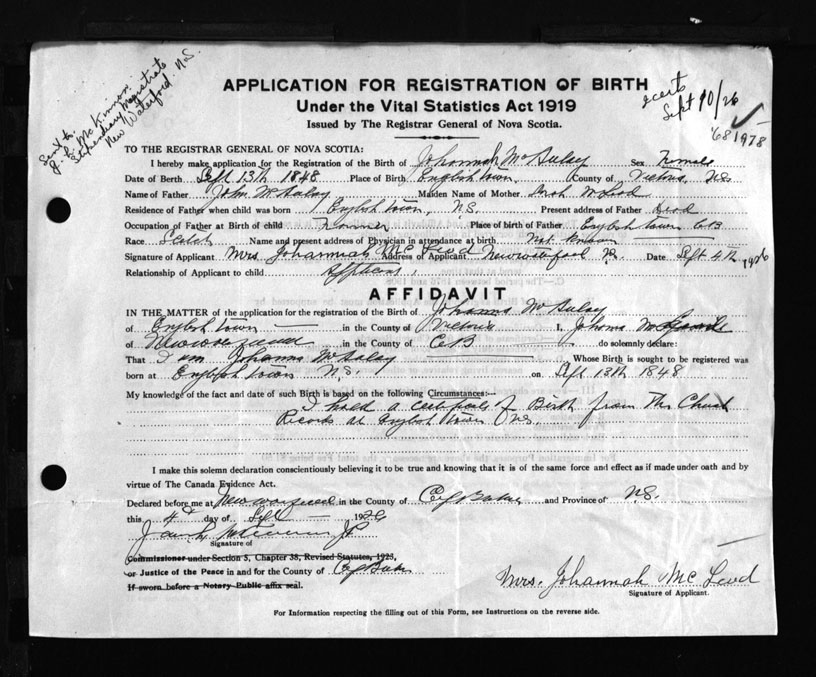 Sent to
J. L. McKinnon
Stipendiary Magistrate
New Waterford N.S.
2 certs
Sept 10/26
'68 1978
APPLICATION FOR REGISTRATION OF BIRTH
Under the Vital Statistics Act 1919
Issued by The Registrar General of Nova Scotia.
TO THE REGISTRAR GENERAL OF NOVA SCOTIA:
I hereby make application for the Registration of the Birth of Johannah McAulay Sex Female
Date of Birth Sept 13th 1848 Place of Birth English town, County of Victoria, N.S.
Name of Father John McAulay Maiden Name of Mother Sarah McLeod
Residence of Father when child was born English town, N.S. Present address of Father Dead
Occupation of Father at Birth of child Farmer Place of birth of Father English town C.B
Race Scotch Name and present address of Physician in attendance at birth Not known
Signature of Applicant Mrs. Johannah McLeod Address of Applicant Date Sept 4th 1926
Relationship of Applicant to child Applicant.
AFFIDAVIT
IN THE MATTER of the application for the registration of Birth of Johanna McAulay
of English town in the County of Victoria I, Johanna
of in the County of C.B do solemnly declare:
That I am Johanna McAulay Whose Birth is sought to be registered was
born at English town N.S. on Sept 13th 1848
My knowledge of the fact and date of such Birth is based on the following Circumstances:—
I hold a certificate of Birth from The Church
Records at English town N.S.
I make this solemn declaration conscientiously believing it to be true and knowing that it is of the same force and effect as if made under oath and by
virtue of The Canada Evidence Act.
Declared before me at in the County of Cape Breton and Province of N.S.
this 4th day of Sept 1926
Signature of
Commissioner under Section 5, Chapter 38, Revised Statutes, 1923,
or Justice of the Peace in and for the County of Cape Breton
If sworn before a Notary Public affix seal.
Mrs. Johannah McLeod
Signature of Applicant.
For Information respecting the filling out of this Form, see Instructions on the reverse side.